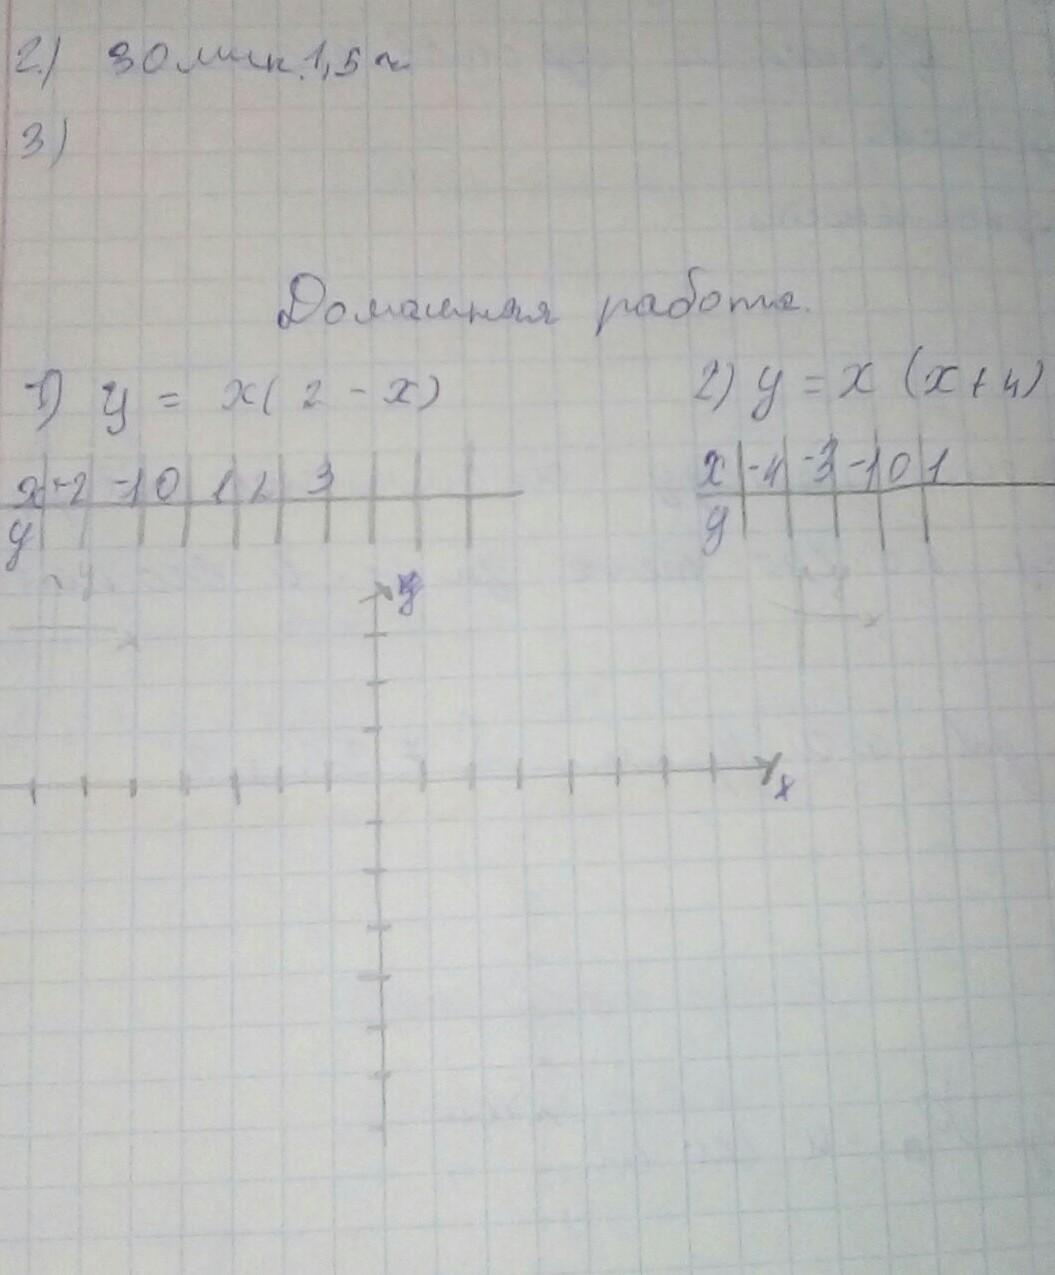 2) 30 мин. 1,5 ч
3)
Домашняя работа.
1) y = x(2 - x)
2) y = x (x + 4)
x -2 -1 0 1 2 3
y
x -4 -3 -1 0 1
y
y
x